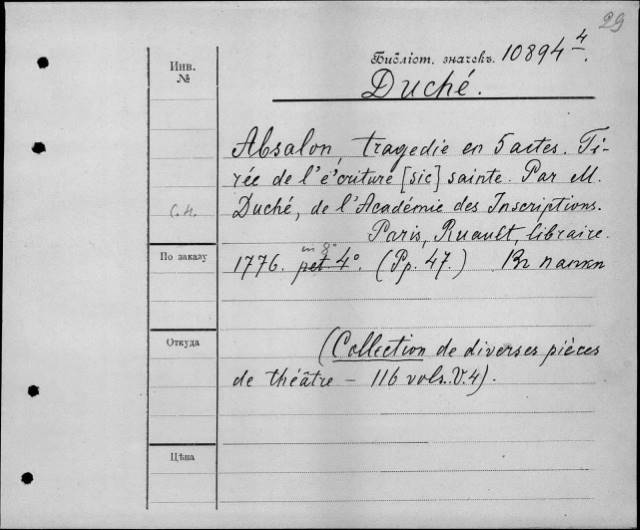 29
Инв.
№
Библіот. значекъ. 10894 4.
Duché.
Absalon, tragedie en 5 actes. Ti-
rée de l'e'criture [sic] sainte. Par M.
С.н.
Duché, de l'Académie des Inscriptions.
Paris, Ruault, libraire.
По заказу
in 8°
1776. pet. 4°. (Pp. 47.)
Откуда
(Collection de diverses pièces
de théâtre – 116 vols. V. 4).
Цѣна